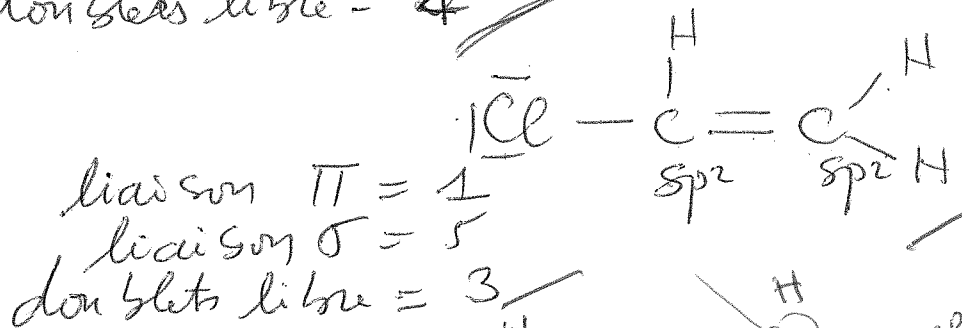 doublets libre = 4
H
H
|Cl — C = C
sp2 sp2 H
liaison π = 1
liaison σ = 5
doublets libre = 3
H